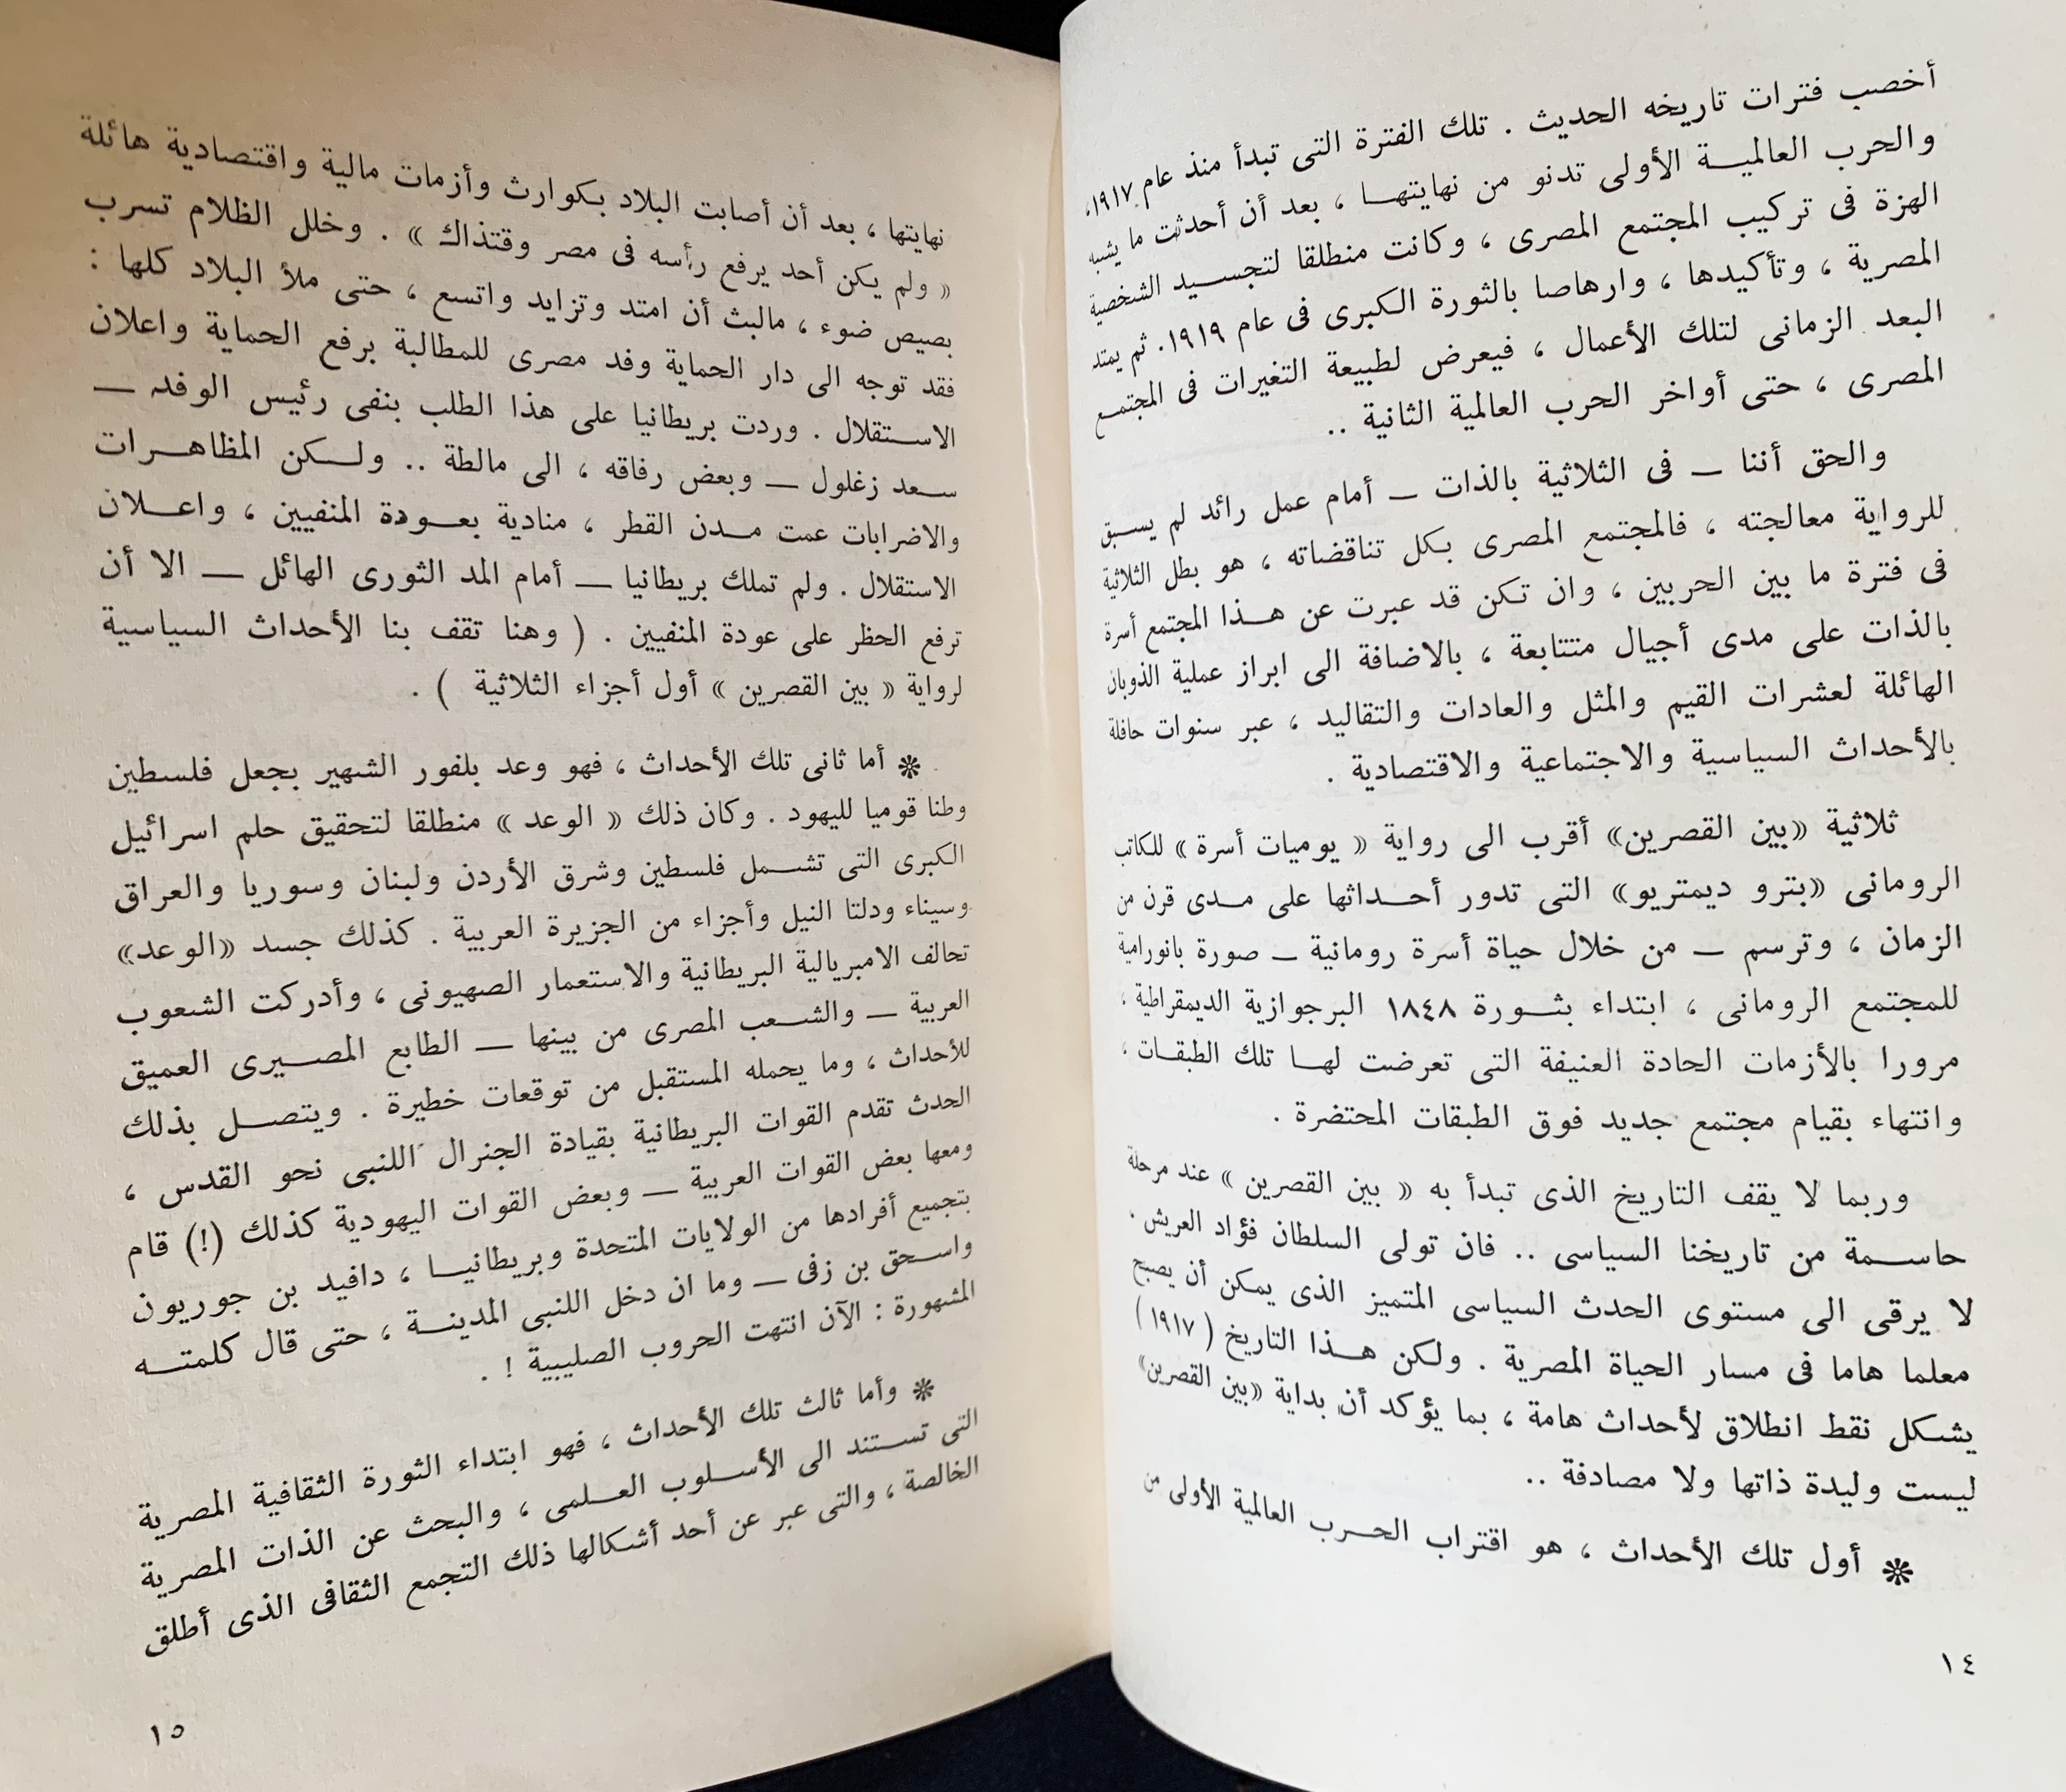 أخصب فترات تاريخه الحديث . تلك الفترة التى تبدأ منذ عام ١٩١٧،
والحرب العالميـة الأولى تدنو من نهايتهـا ، بعد أن أحدثت ما يشبه
الهزة فى تركيب المجتمع المصرى ، وكانت منطلقا لتجسـيد الشخصية
المصرية ، وتأكيدها ، وارهاصا بالثورة الكبرى فى عام ١٩١٩. ثم يمتد
البعد الزمانى لتلك الأعمال ، فيعرض لطبيعة التغيرات فى المجتمع
المصرى ، حتى أواخر الحرب العالمية الثانية ..
والحق أننا ــ فى الثلاثية بالذات ــ أمام عمل رائد لم يسـبق
للرواية معالجته ، فالمجتمع المصرى بكل تناقضاته ، هو بطل الثلاثية
فى فترة ما بين الحربين ، وان تكن قد عبرت عن هـذا المجتمع أسرة
بالذات على مدى أجيال متتابعة ، بالاضافة الى ابراز عملية الذوبان
الهائلة لعشرات القيم والمثل والعادات والتقاليد ، عبر سنوات حافلة
بالأحداث السياسية والاجتماعية والاقتصادية .
ثلاثية «بين القصرين» أقرب الى رواية « يوميات أسرة » للكاتب
الرومانى «بترو ديمتريو» التى تدور أحـداثها على مـدى قرن من
الزمان ، وترسم ــ من خلال حياة أسرة رومانية ــ صورة بانورامية
للمجتمع الرومانى ، ابتداء بثـورة ١٨٤٨ البرجوازية الديمقراطية ،
مرورا بالأزمات الحادة العنيفة التى تعرضت لهـا تلك الطبقـات ،
وانتهاء بقيام مجتمع جديد فوق الطبقات المحتضرة .
وربما لا يقف التاريخ الذى تبدأ به « بين القصرين » عند مرحلة
حاسـمة من تاريخنا السياسى .. فان تولى السلطان فؤاد العريش .
لا يرقى الى مستوى الحدث السياسى المتميز الذى يمكن أن يصبح
معلما هاما فى مسار الحياة المصرية . ولكن هـذا التاريخ ( ١٩١٧)
يشكل نقط انطلاق لأحداث هامة ، بما يؤكد أن بداية «بين القصرين»
ليست وليدة ذاتها ولا مصادفة ..
❋ أول تلك الأحداث ، هو اقتراب الحـرب العالمية الأولى من
١٤
نهايتها ، بعد أن أصابت البلاد بكوارث وأزمات مالية واقتصادية هائلة
« ولم يكن أحد يرفع رأسه فى مصر وقتذاك » . وخلل الظلام تسرب
بصيص ضوء ، مالبث أن امتد وتزايد واتسع ، حتى ملأ البلاد كلها :
فقد توجه الى دار الحماية وفد مصرى للمطالبة برفع الحماية واعلان
الاسـتقلال . وردت بريطانيا على هذا الطلب بنفى رئيس الوفد ــ
سـعد زغلول ــ وبعض رفاقه ، الى مالطة .. ولـكن المظاهـرات
والاضرابات عمت مـدن القطر ، منادية بعـودة المنفيين ، واعـلان
الاستقلال . ولم تملك بريطانيا ــ أمام المد الثورى الهائل ــ الا أن
ترفع الحظر على عودة المنفيين . ( وهنا تقف بنا الأحداث السياسية
لرواية « بين القصرين » أول أجزاء الثلاثية ) .
❋ أما ثانى تلك الأحداث ، فهو وعد بلفور الشهير بجعل فلسطين
وطنا قوميا لليهود . وكان ذلك « الوعد » منطلقا لتحقيق حلم اسرائيل
الكبرى التى تشـمل فلسطين وشرق الأردن ولبنان وسوريا والعراق
وسيناء ودلتا النيل وأجزاء من الجزيرة العربية . كذلك جسد «الوعد»
تحالف الامبريالية البريطانية والاستعمار الصهيونى ، وأدركت الشعوب
العربية ــ والشـعب المصرى من بينها ــ الطابع المصـيرى العميق
للأحداث ، وما يحمله المستقبل من توقعات خطيرة . ويتصـل بذلك
الحدث تقدم القوات البريطانية بقيادة الجنرال اللنبى نحو القدس ،
ومعها بعض القوات العربية ــ وبعض القوات اليهودية كذلك (!) قام
بتجميع أفرادها من الولايات المتحدة وبريطانيـا ، دافيد بن جوريون
واسـحق بن زفى ــ وما ان دخل اللنبى المدينـة ، حتى قال كلمتـه
المشهورة : الآن انتهت الحروب الصليبية ! .
❋ وأما ثالث تلك الأحداث ، فهو ابتداء الثورة الثقافية المصرية
التى تسـتند الى الأسـلوب العـلمى ، والبحث عن الذات المصرية
الخالصة ، والتى عبر عن أحد أشكالها ذلك التجمع الثقافى الذى أطلق
١٥